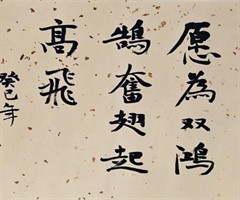 愿為双鸿
鹄奮翅起
高飛
癸巳年